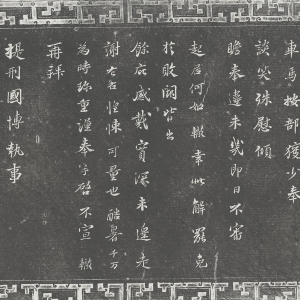 車馬按部獲少奉
談笑殊慰傾
瞻奉違未幾即日不審
起居何如轍幸此解罷免
於敗闕皆出
餘庇感戴實深未遑走
謝右右惶悚可量也酷暑千万
為時珍重謹奉手啓不宣轍
再拜
提刑國博執事